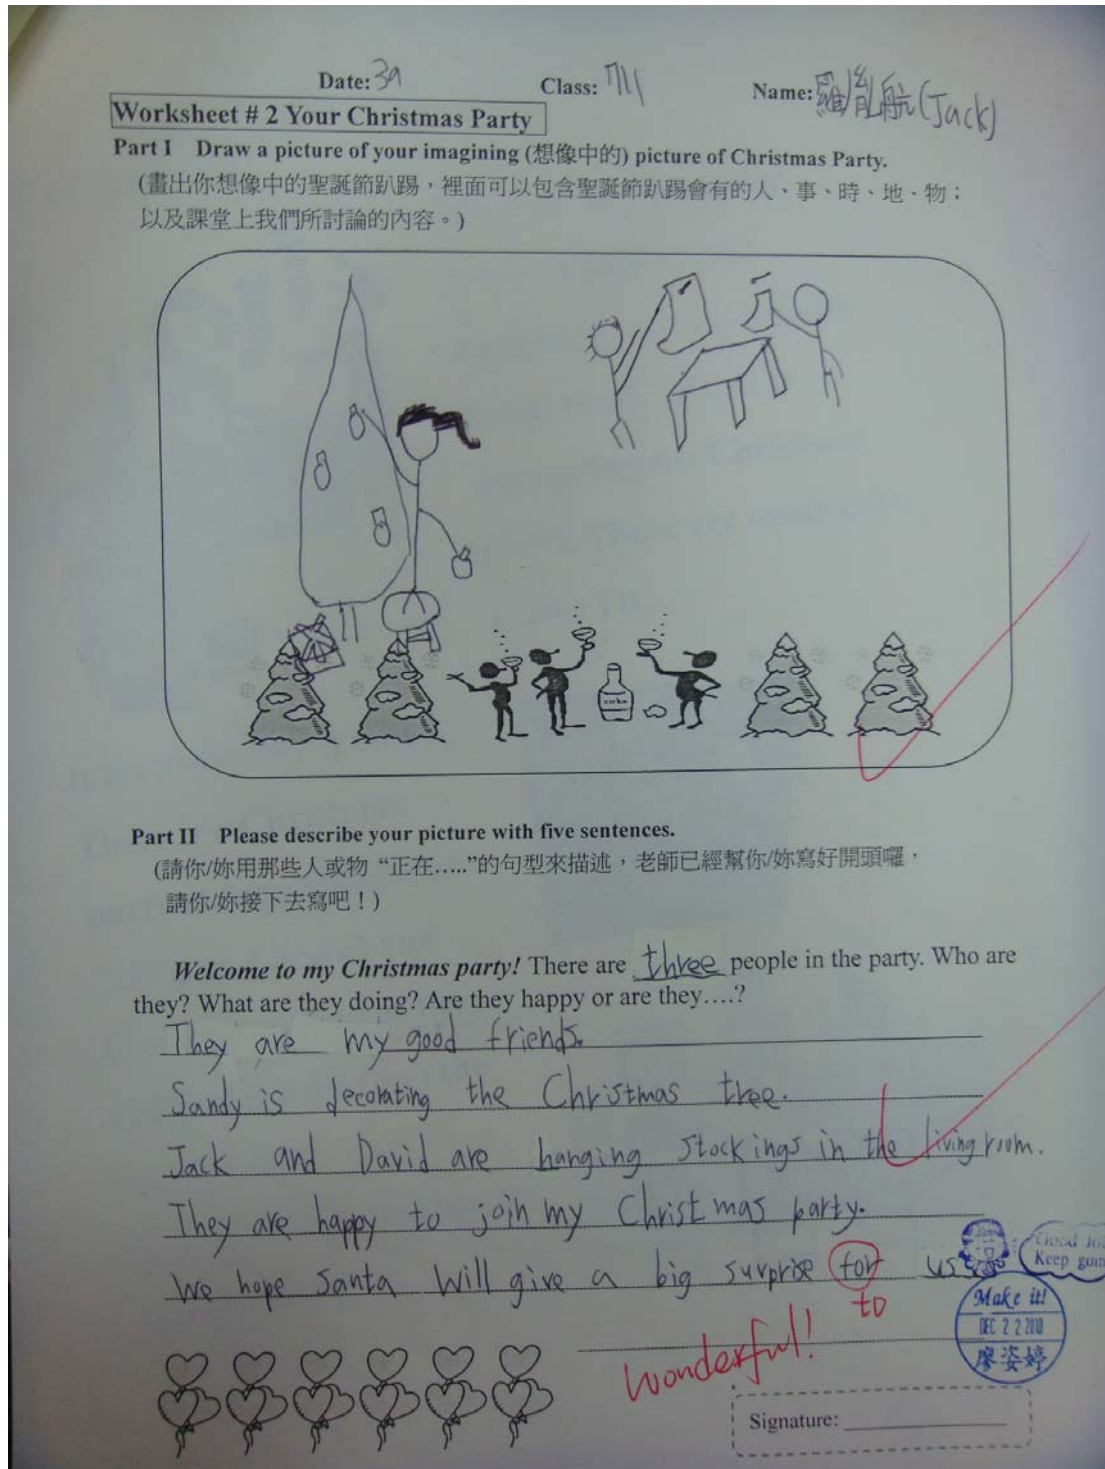 Date: 39 Class: 711 Name: 羅胤航(Jack)
Worksheet # 2 Your Christmas Party
Part I Draw a picture of your imagining (想像中的) picture of Christmas Party.
(畫出你想像中的聖誕節趴踢，裡面可以包含聖誕節趴踢會有的人、事、時、地、物；
以及課堂上我們所討論的內容。)
coke
Part II Please describe your picture with five sentences.
(請你/妳用那些人或物 “正在…..”的句型來描述，老師已經幫你/妳寫好開頭囉，
請你/妳接下去寫吧！)
Welcome to my Christmas party! There are three people in the party. Who are
they? What are they doing? Are they happy or are they….?
They are my good friends.
Sandy is decorating the Christmas tree.
Jack and David are hanging stockings in the living room.
They are happy to join my Christmas party.
We hope Santa will give a big surprise for us
to
Good Jo
Keep goin
Make it!
DEC 22 2010
廖姿婷
Wonderful!
Signature: